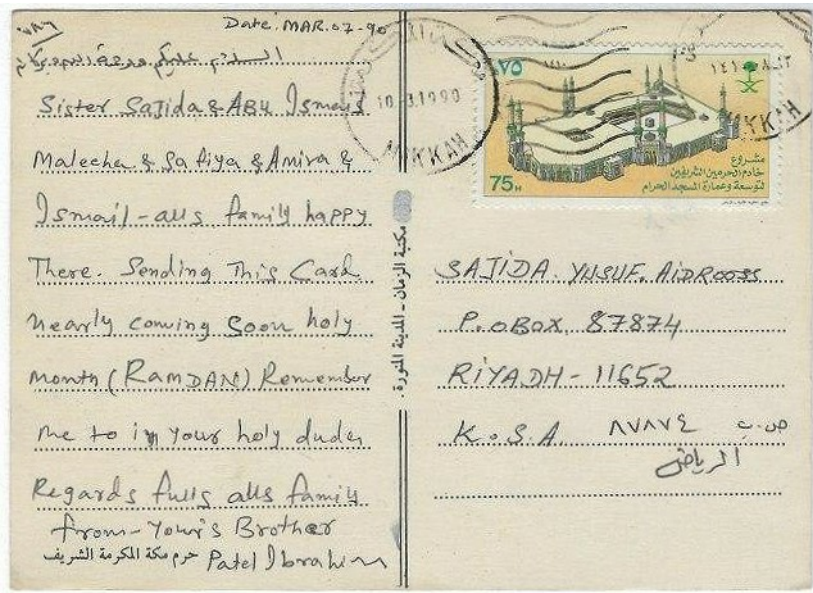 ٧٨٦
Date. MAR. 07-90
السلام عليكم ورحمة الله وبركاته
Sister Sajida & Abu Ismail
Maleeha & Safiya & Amira &
Ismail - alls family happy
There. Sending This Card
nearly coming soon holy
month (RAMDAN) Remember
me to in your holy duder
Regards fulls alls family
from - Your's Brother
Patel Ibrahim
حرم مكة المكرمة الشريف
مكتبة الزمان - المدينة المنورة
10.3.1990
MAKKAH
MAKKAH
٧٥
75H
مشروع
خادم الحرمين الشريفين
لتوسعة وعمارة المسجد الحرام
SAJIDA. YUSUF. AIDROOSS
P.O BOX, 87874
RIYADH - 11652
K.S.A. ص.ب ٨٧٨٧٤
الرياض